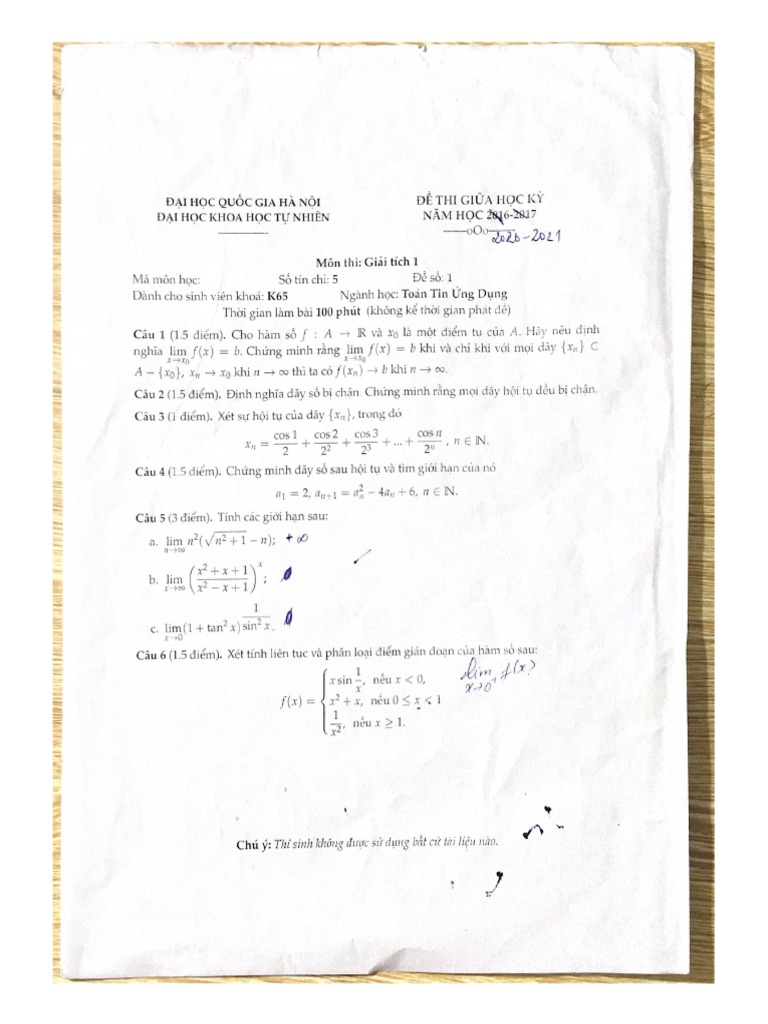 ĐẠI HỌC QUỐC GIA HÀ NỘI
ĐẠI HỌC KHOA HỌC TỰ NHIÊN
ĐỀ THI GIỮA HỌC KỲ
NĂM HỌC 2016-2017
——oOo——
2020-2021
Môn thi: Giải tích 1
Mã môn học: Số tín chỉ: 5 Đề số: 1
Dành cho sinh viên khoá: K65 Ngành học: Toán Tin Ứng Dụng
Thời gian làm bài 100 phút (không kể thời gian phát đề)
Câu 1 (1.5 điểm). Cho hàm số f : A → ℝ và x₀ là một điểm tụ của A. Hãy nêu định
nghĩa lim_{x→x₀} f(x) = b. Chứng minh rằng lim_{x→x₀} f(x) = b khi và chỉ khi với mọi dãy {xₙ} ⊂
A − {x₀}, xₙ → x₀ khi n → ∞ thì ta có f(xₙ) → b khi n → ∞.
Câu 2 (1.5 điểm). Định nghĩa dãy số bị chặn. Chứng minh rằng mọi dãy hội tụ đều bị chặn.
Câu 3 (1 điểm). Xét sự hội tụ của dãy {xₙ}, trong đó
xₙ = cos 1/2 + cos 2/2² + cos 3/2³ + ... + cos n/2ⁿ, n ∈ ℕ.
Câu 4 (1.5 điểm). Chứng minh dãy số sau hội tụ và tìm giới hạn của nó
a₁ = 2, aₙ₊₁ = aₙ² − 4aₙ + 6, n ∈ ℕ.
Câu 5 (3 điểm). Tính các giới hạn sau:
a. lim_{n→∞} n²(√(n² + 1) − n); +∞
b. lim_{x→∞} ((x² + x + 1)/(x² − x + 1))^x;
c. lim_{x→0} (1 + tan² x)^{1/sin² x}.
Câu 6 (1.5 điểm). Xét tính liên tục và phân loại điểm gián đoạn của hàm số sau:
f(x) = { x sin 1/x, nếu x < 0,
x² + x, nếu 0 ≤ x < 1
1/x², nếu x ≥ 1.
lim_{x→0⁺} f(x)
Chú ý: Thí sinh không được sử dụng bất cứ tài liệu nào.